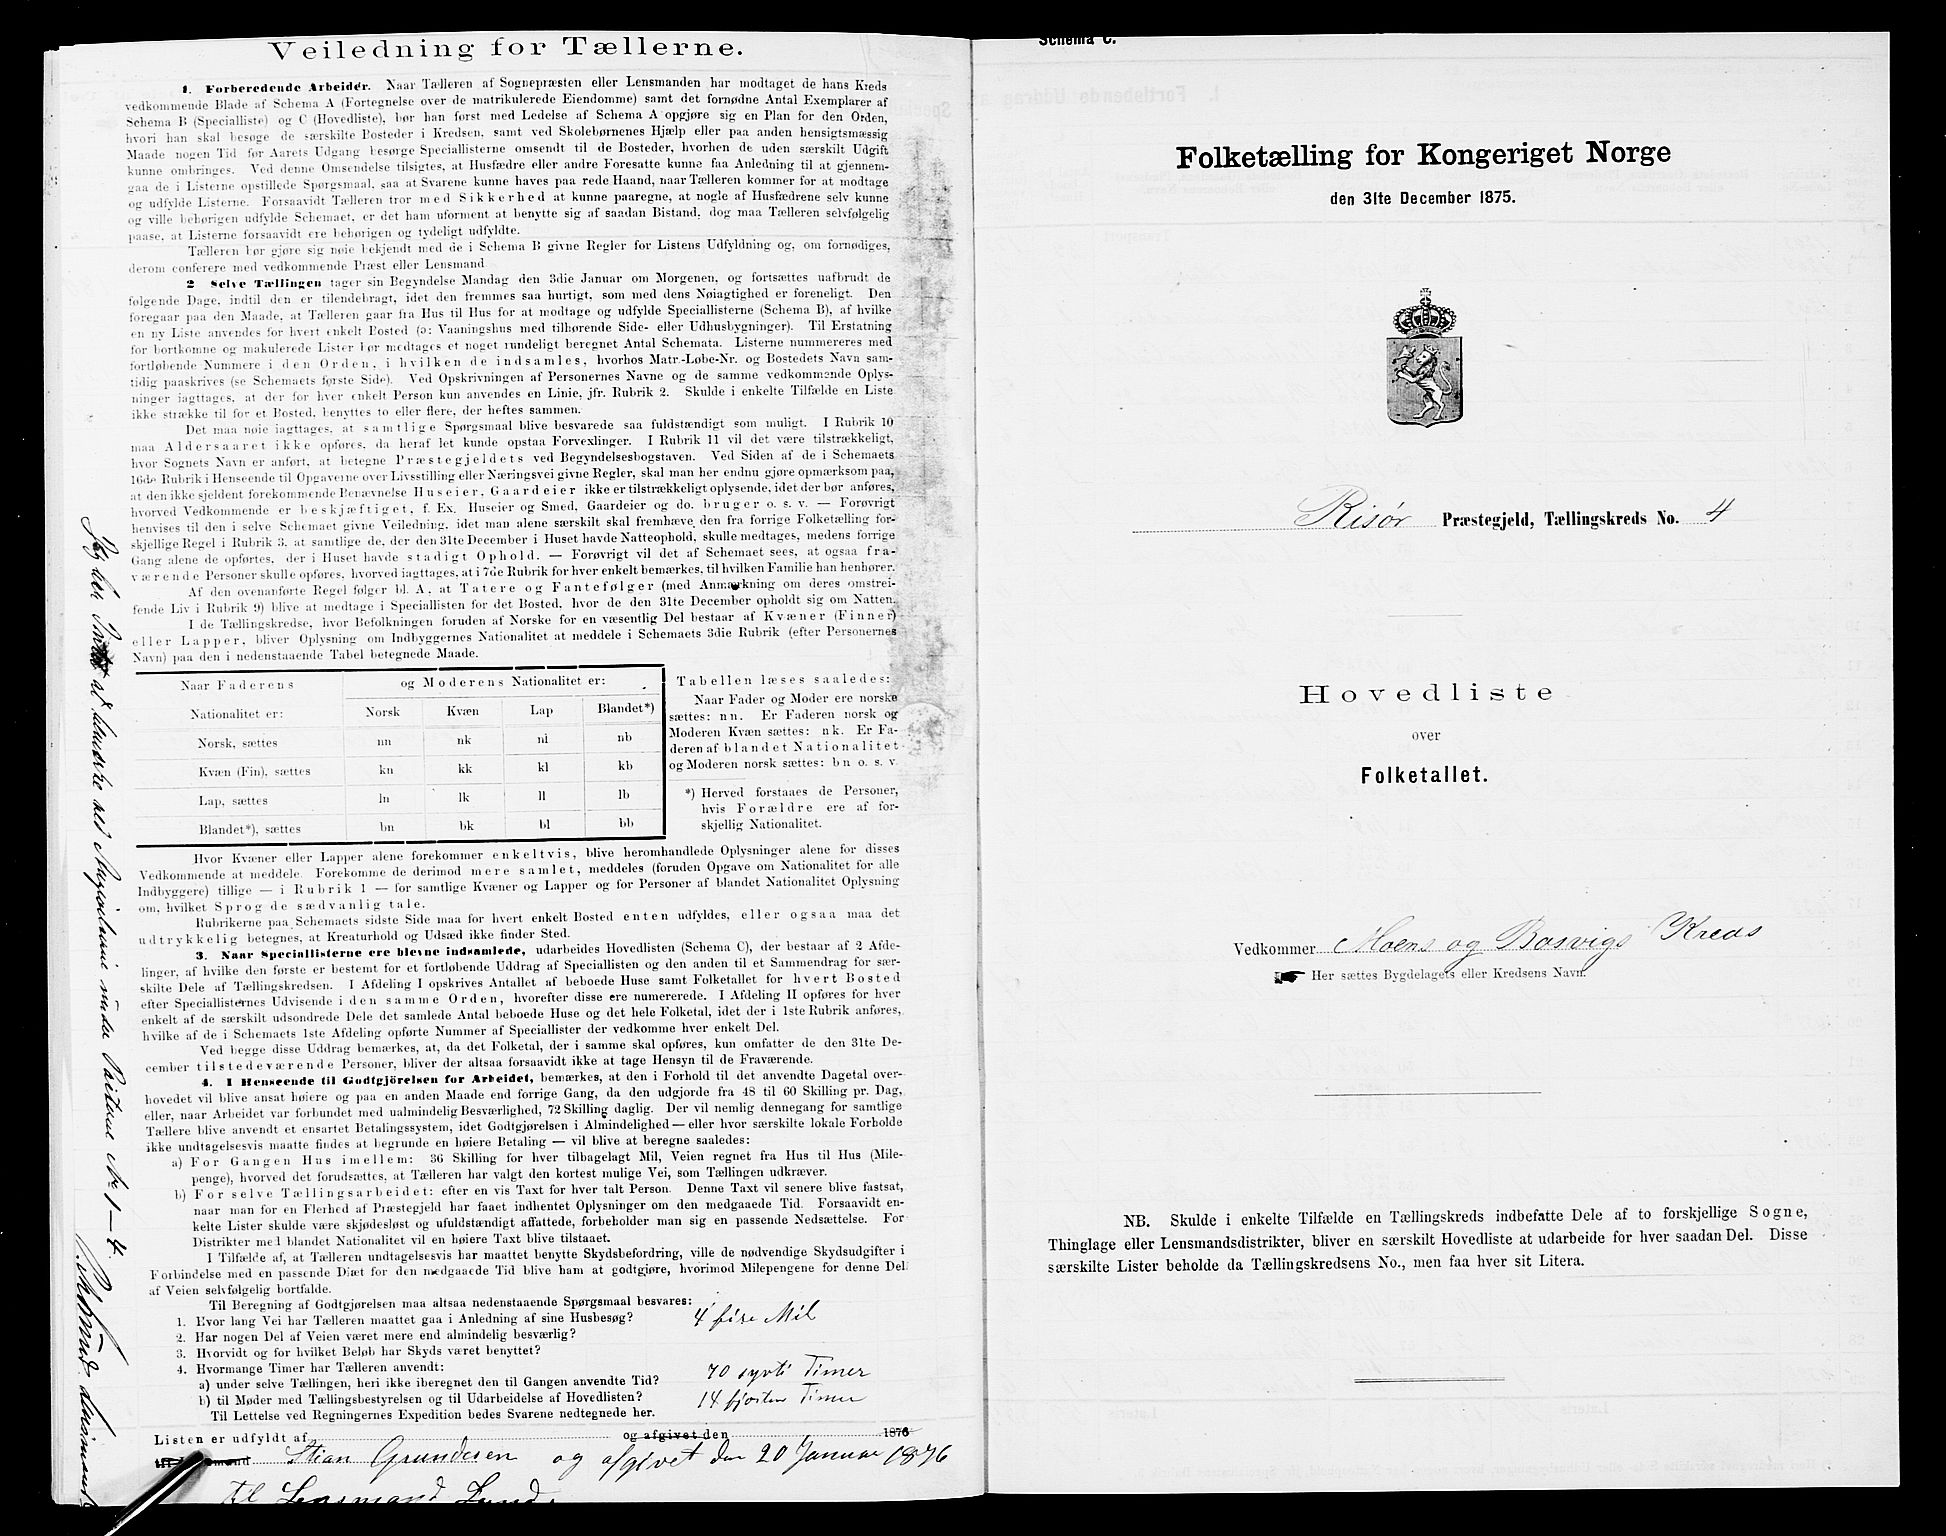 Veiledning for Tællerne.
1. Forberedende Arbeider. Naar Tælleren af Sognepræsten eller Lensmanden har modtaget de hans Kreds
vedkommende Blade af Schema A (Fortegnelse over de matrikulerede Eiendomme) samt det fornødne Antal Exemplarer af
Schema B (Specialliste) og C (Hovedliste), bør han først med Ledelse af Schema A opgjøre sig en Plan for den Orden,
hvori han skal besøge de særskilte Bosteder i Kredsen, samt ved Skolebørnenes Hjælp eller paa anden hensigtsmæssig
Maade nogen Tid før Aarets Udgang besørge Speciallisterne omsendt til de Bosteder, hvorhen de uden særskilt Udgift
kunne ombringes. Ved denne Omsendelse tilsigtes, at Husfædre eller andre Foresatte kunne faa Anledning til at gjennem-
gaa de i Listerne opstillede Spørgsmaal, saa at Svarene kunne haves paa rede Haand, naar Tælleren kommer for at modtage
og udfylde Listerne. Forsaavidt Tælleren tror med Sikkerhed at kunne paaregne, at nogle af Husfædrene selv kunne
og ville behørigen udfylde Schemaet, er det ham uforment at benytte sig af saadan Bistand, dog maa Tælleren selvfølgelig
paase, at Listerne forsaavidt ere behørigen og tydeligt udfyldte.
Tælleren bør gjøre sig nøie bekjendt med de i Schema B givne Regler for Listens Udfyldning og, om fornødiges,
derom conferere med vedkommende Præst eller Lensmand
2 Selve Tællingen tager sin Begyndelse Mandag den 3die Januar om Morgenen, og fortsættes uafbrudt de
følgende Dage, indtil den er tilendebragt, idet den fremmes saa hurtigt, som med dens Nøiagtighed er foreneligt. Den
foregaar paa den Maade, at Tælleren gaar fra Hus til Hus for at modtage og udfylde Speciallisterne (Schema B), af hvilke
en ny Liste anvendes for hvert enkelt Bosted (ɔ: Vaaningshus med tilhørende Side- eller Udhusbygninger). Til Erstatning
for bortkomne og makulerede Lister bør medtages et noget rundeligt beregnet Antal Schemata. Listerne nummereres med
fortløbende Nummere i den Orden, i hvilken de indsamles, hvorhos Matr.-Løbe-Nr. og Bostedets Navn sam-
tidig paaskrives (se Schemaets første Side). Ved Opskrivningen af Personernes Navne og de samme vedkommende Oplys-
ninger iagttages, at der for hver enkelt Person kun anvendes en Linie, jfr. Rubrik 2. Skulde i enkelte Tilfælde en Liste
ikke strække til for et Bosted, benyttes to eller flere, der heftes sammen.
Det maa nøie iagttages, at samtlige Spørgsmaal blive besvarede saa fuldstændigt som muligt. I Rubrik 10
maa Aldersaaret ikke opføres, da heraf let kunde opstaa Forvexlinger. I Rubrik 11 vil det være tilstrækkeligt,
hvor Sognets Navn er anført, at betegne Præstegjeldets ved Begyndelsesbogstaven. Ved Siden af de i Schemaets
16de Rubrik i Henseende til Opgaverne over Livsstilling eller Næringsvei givne Regler, skal man her endnu gjøre opmærksom paa,
at den ikke sjeldent forekommende Benævnelse Huseier, Gaardeier ikke er tilstrækkeligt oplysende, idet der bør anføres,
hvorved Vedkommende er beskjæftiget, f. Ex. Huseier og Smed, Gaardeier og do. bruger o. s. v. — Forøvrigt
henvises til den i selve Schemaet givne Veiledning, idet man alene særskilt skal fremhæve den fra forrige Folketælling for-
skjellige Regel i Rubrik 3, at samtlige de, der den 31te December i Huset havde Natteophold, skulle medtages, medens forrige
Gang alene de opførtes, der i Huset havde stadigt Ophold. — Forøvrigt vil det af Schemaet sees, at ogsaa fra-
værende Personer skulle opføres, hvorved iagttages, at i 7de Rubrik for hver enkelt bemærkes, til hvilken Familie han henhører.
Af den ovenanførte Regel følger bl. A. at Tatere og Fantefølger (med Anmærkning om deres omstrei-
fende Liv i Rubrik 9) blive at medtage i Speciallisten for det Bosted, hvor de den 31te December opholdt sig om Natten.
I de Tællingskredse, hvor Befolkningen foruden af Norske for en væsentlig Del bestaar af Kvæner (Finner)
eller Lapper, bliver Oplysning om Indbyggernes Nationalitet at meddele i Schemaets 3die Rubrik (efter Personernes
Navn) paa den i nedenstaaende Tabel betegnede Maade.
Naar Faderens Nationalitet er: og Moderens Nationalitet er:
Norsk Kvæn Lap Blandet*)
Norsk, sættes nn nk nl nb
Kvæn (Fin), sættes kn kk kl kb
Lap, sættes ln lk ll lb
Blandet*), sættes bn bk bl bb
Tabellen læses saaledes:
Naar Fader og Moder ere norske
sættes: nn. Er Faderen norsk og
Moderen Kvæn sættes: nk. Er Fa-
deren af blandet Nationalitet
og Moderen norsk sættes: bn o. s. v.
*) Herved forstaaes de Personer,
hvis Forældre ere af for-
skjellig Nationalitet.
Hvor Kvæner eller Lapper alene forekommer enkeltvis, blive heromhandlede Oplysninger alene for disses
Vedkommende at meddele. Forekomme de derimod mere samlet, meddeles (foruden Opgave om Nationalitet for alle
Indbyggere) tillige — i Rubrik 1 — for samtlige Kvæner og Lapper og for Personer af blandet Nationalitet Oplysning
om, hvilket Sprog de sædvanlig tale.
Rubrikerne paa Schemaets sidste Side maa for hvert enkelt Bosted enten udfyldes, eller ogsaa maa det
udtrykkelig betegnes, at Kreaturhold og Udsæd ikke finder Sted.
3. Naar Speciallisterne ere blevne indsamlede, udarbeides Hovedlisten (Schema C), der bestaar af 2 Afde-
linger, af hvilke den første er bestemt for et fortløbende Uddrag af Speciallisten og den anden til et Sammendrag for sær-
skilte Dele af Tællingskredsen. I Afdeling I opskrives Antallet af beboede Huse samt Folketallet for hvert Bosted
efter Speciallisternes Udvisende i den samme Orden, hvorefter disse ere numererede. I Afdeling II opføres for hver
enkelt af de særskilt udsondrede Dele det samlede Antal beboede Huse og det hele Folketal, idet der i 1ste Rubrik anføres,
hvilke af de i Schemaets 1ste Afdeling opførte Nummer af Speciallister der vedkomme hver enkelt Del.
Ved begge disse Uddrag bemærkes, at, da det Folketal, der i samme skal opføres, kun omfatter de den 31te De-
cember tilstedeværende Personer, bliver der altsaa forsaavidt ikke at tage Hensyn til de Fraværende.
4. I Henseende til Godtgjörelsen for Arbeidet, bemærkes, at den i Forhold til det anvendte Dagetal over-
hovedet vil blive ansat høiere og paa en anden Maade end forrige Gang, da den udgjorde fra 48 til 60 Skilling pr. Dag,
eller, naar Arbeidet var forbundet med ualmindelig Besværlighed, 72 Skilling daglig. Der vil nemlig dennegang for samtlige
Tællere blive anvendt et ensartet Betalingssystem, idet Godtgjørelsen i Almindelighed — eller hvor særskilte lokale Forholde
ikke undtagelsesvis maatte findes at begrunde en høiere Betaling — vil blive at beregne saaledes:
a) For Gangen Hus imellem: 36 Skilling for hver tilbagelagt Mil, Veien regnet fra Hus til Hus (Mile-
penge), hvorved det forudsættes, at Tælleren har valgt den kortest mulige Vei, som Tællingen udkræver.
b) For selve Tællingsarbeidet: efter en vis Taxt for hver talt Person. Denne Taxt vil senere blive fastsat,
naar man for en Flerhed af Præstegjeld har faaet indhentet Oplysninger om den medgaaede Tid. Forsaavidt en-
kelte Lister skulde være skjødesløst og ufuldstændigt affattede, forbeholder man sig en passende Nedsættelse. For
Distrikter med blandet Nationalitet vil en høiere Taxt blive tilstaaet.
I Tilfælde af, at Tælleren undtagelsesvis har maattet benytte Skydsbefordring, ville de nødvendige Skydsudgifter i
Forbindelse med en passende Diæt for den medgaaede Tid blive ham at godtgjøre, hvorimod Milepengene for denne Del
af Veien selvfølgelig bortfalde.
Til Beregning af Godtgjørelsen maa altsaa nedenstaaende Spørgsmaal besvares:
1. Hvor lang Vei har Tælleren maattet gaa i Anledning af sine Husbesøg? 4 fire Mil
2. Har nogen Del af Veien været mere end almindelig besværlig?
3. Hvorvidt og for hvilket Beløb har Skyds været benyttet?
4. Hvormange Timer har Tælleren anvendt:
a) under selve Tællingen, heri ikke iberegnet den til Gangen anvendte Tid? 70 sytti Timer
b) til Møder med Tællingsbestyrelsen og til Udarbeidelse af Hovedlisten? 14 fjorten Timer
Til Lettelse ved Regningernes Expedition bedes Svarene nedtegnede her.
Listen er udfyldt af og afgivet den 1876
Stian Grundesen og afgivet den 20 Januar 1876
til Lensmand Lund
Schema C.
Folketælling for Kongeriget Norge
den 31te December 1875.
Risør Præstegjeld, Tællingskreds No. 4
Hovedliste
over
Folketallet.
Vedkommer Moens og Bosvigs Kreds
Her sættes Bygdelagets eller Kredsens Navn.
NB. Skulde i enkelte Tilfælde en Tællingskreds indbefatte Dele af to forskjellige Sogne,
Thinglage eller Lensmandsdistrikter, bliver en særskilt Hovedliste at udarbeide for hver saadan Del. Disse
særskilte Lister beholde da Tællingskredsens No., men faa hver sit Litera.